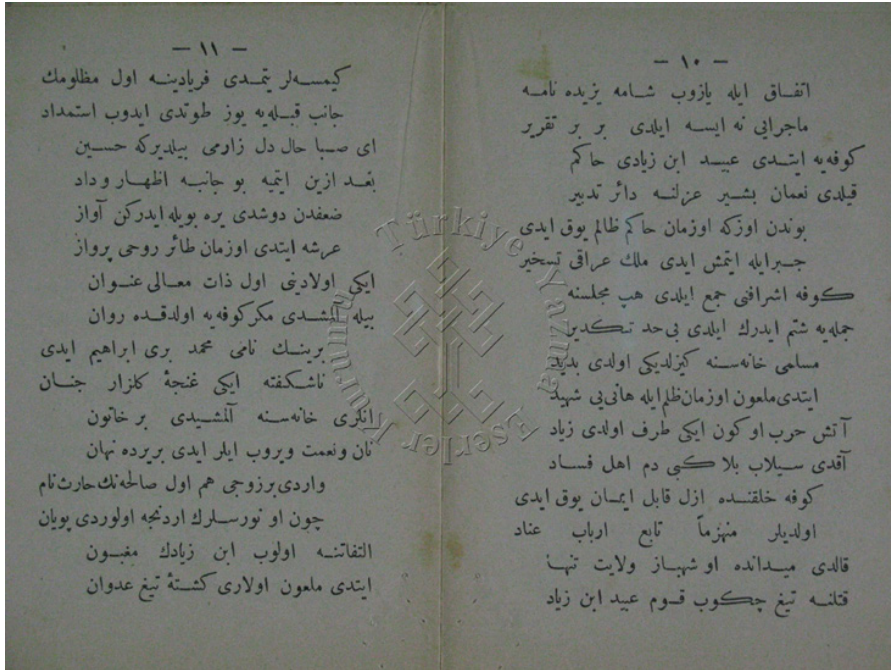 — ١٠ —
اتفـاق ايله يازوب شـامه يزيده نامـه
ماجرايى نه ايسـه ايلدى بر بر تقرير
كوفه‌يه ايتـدى عبيـد ابن زيادى حاكم
قيلدى نعمان بشـير عزلنـه دائر تدبير
بوندن اوزكه اوزمان حاكم ظالم يوق ايدى
جـبرايله ايتمش ايدى ملك عراقى تسخير
كوفه اشرافنى جمع ايلدى هپ مجلسنه
جمله‌يه شتم ايدرك ايلدى بى‌حد تـكدير
مسلمى خانه‌سـنه كيزلديكى اولدى بديد
ايتدى ملعون اوزمان ظلم ايله هانى‌يى شهيد
آتش حرب او كون ايكى طرف اولدى زياد
آقدى سـيلاب بلا كبى دم اهل فسـاد
كوفه خلقنـده ازل قابل ايمـان يوق ايدى
اولديلر منهزماً تابع ارباب عناد
قالدى ميـدانده او شهبـاز ولايت تنهـا
قتلنـه تيغ چكوب قـوم عبيد ابن زياد
— ١١ —
كيمسـه‌لر يتمـدى فريادينـه اول مظلومك
جانب قبـله‌يه يوز طوتدى ايدوب استمداد
اى صـبا حال دل زارمى بيلديركه حسـين
بعـد ازين ايتميه بو جانبـه اظهـار وداد
ضعفدن دوشدى يره بويله ايدركن آواز
عرشه ايتدى اوزمان طائر روحى پرواز
ايكى اولادينى اول ذات معـالى عنـوان
بيله آلمشـدى مكر كوفه‌يه اولدقـده روان
برينـك نامى محمد برى ابراهيم ايدى
ناشـكفته ايكى غنجهٔ كلزار جنـان
انلرى خانه‌سـنه آلمشـيدى بر خاتون
نان ونعمت ويروب ايلر ايدى بر يرده نهان
واردى بر زوجى هم اول صالحه‌نك حارث نام
چون او نورسـلرك اردنجه اولوردى پويان
التفاتنـه اولوب ابن زيادك مغبـون
ايتدى ملعون اولارى كشـتهٔ تيغ عدوان
Türkiye Yazma Eserler Kurumu